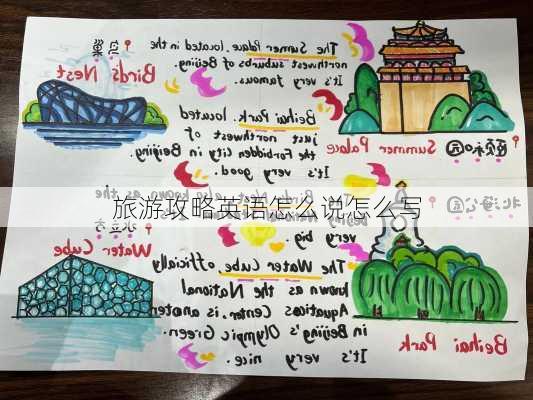 鸟巢
Bird's Nest
The Summer Palace. located in the
northwest suburbs of Beijing.
It's very famous.
颐和园
Summer Palace
Beihai Park. located
just northwest of
the Forbidden City in Beijing.
It's very good.
旅游攻略英语怎么说怎么写
very big.
北海公园
Beihai Park
水立方
Water Cube
The Water Cube officially
known as the National
Aquatics Center, is
in Beijing's Olympic Green.
It's very nice.